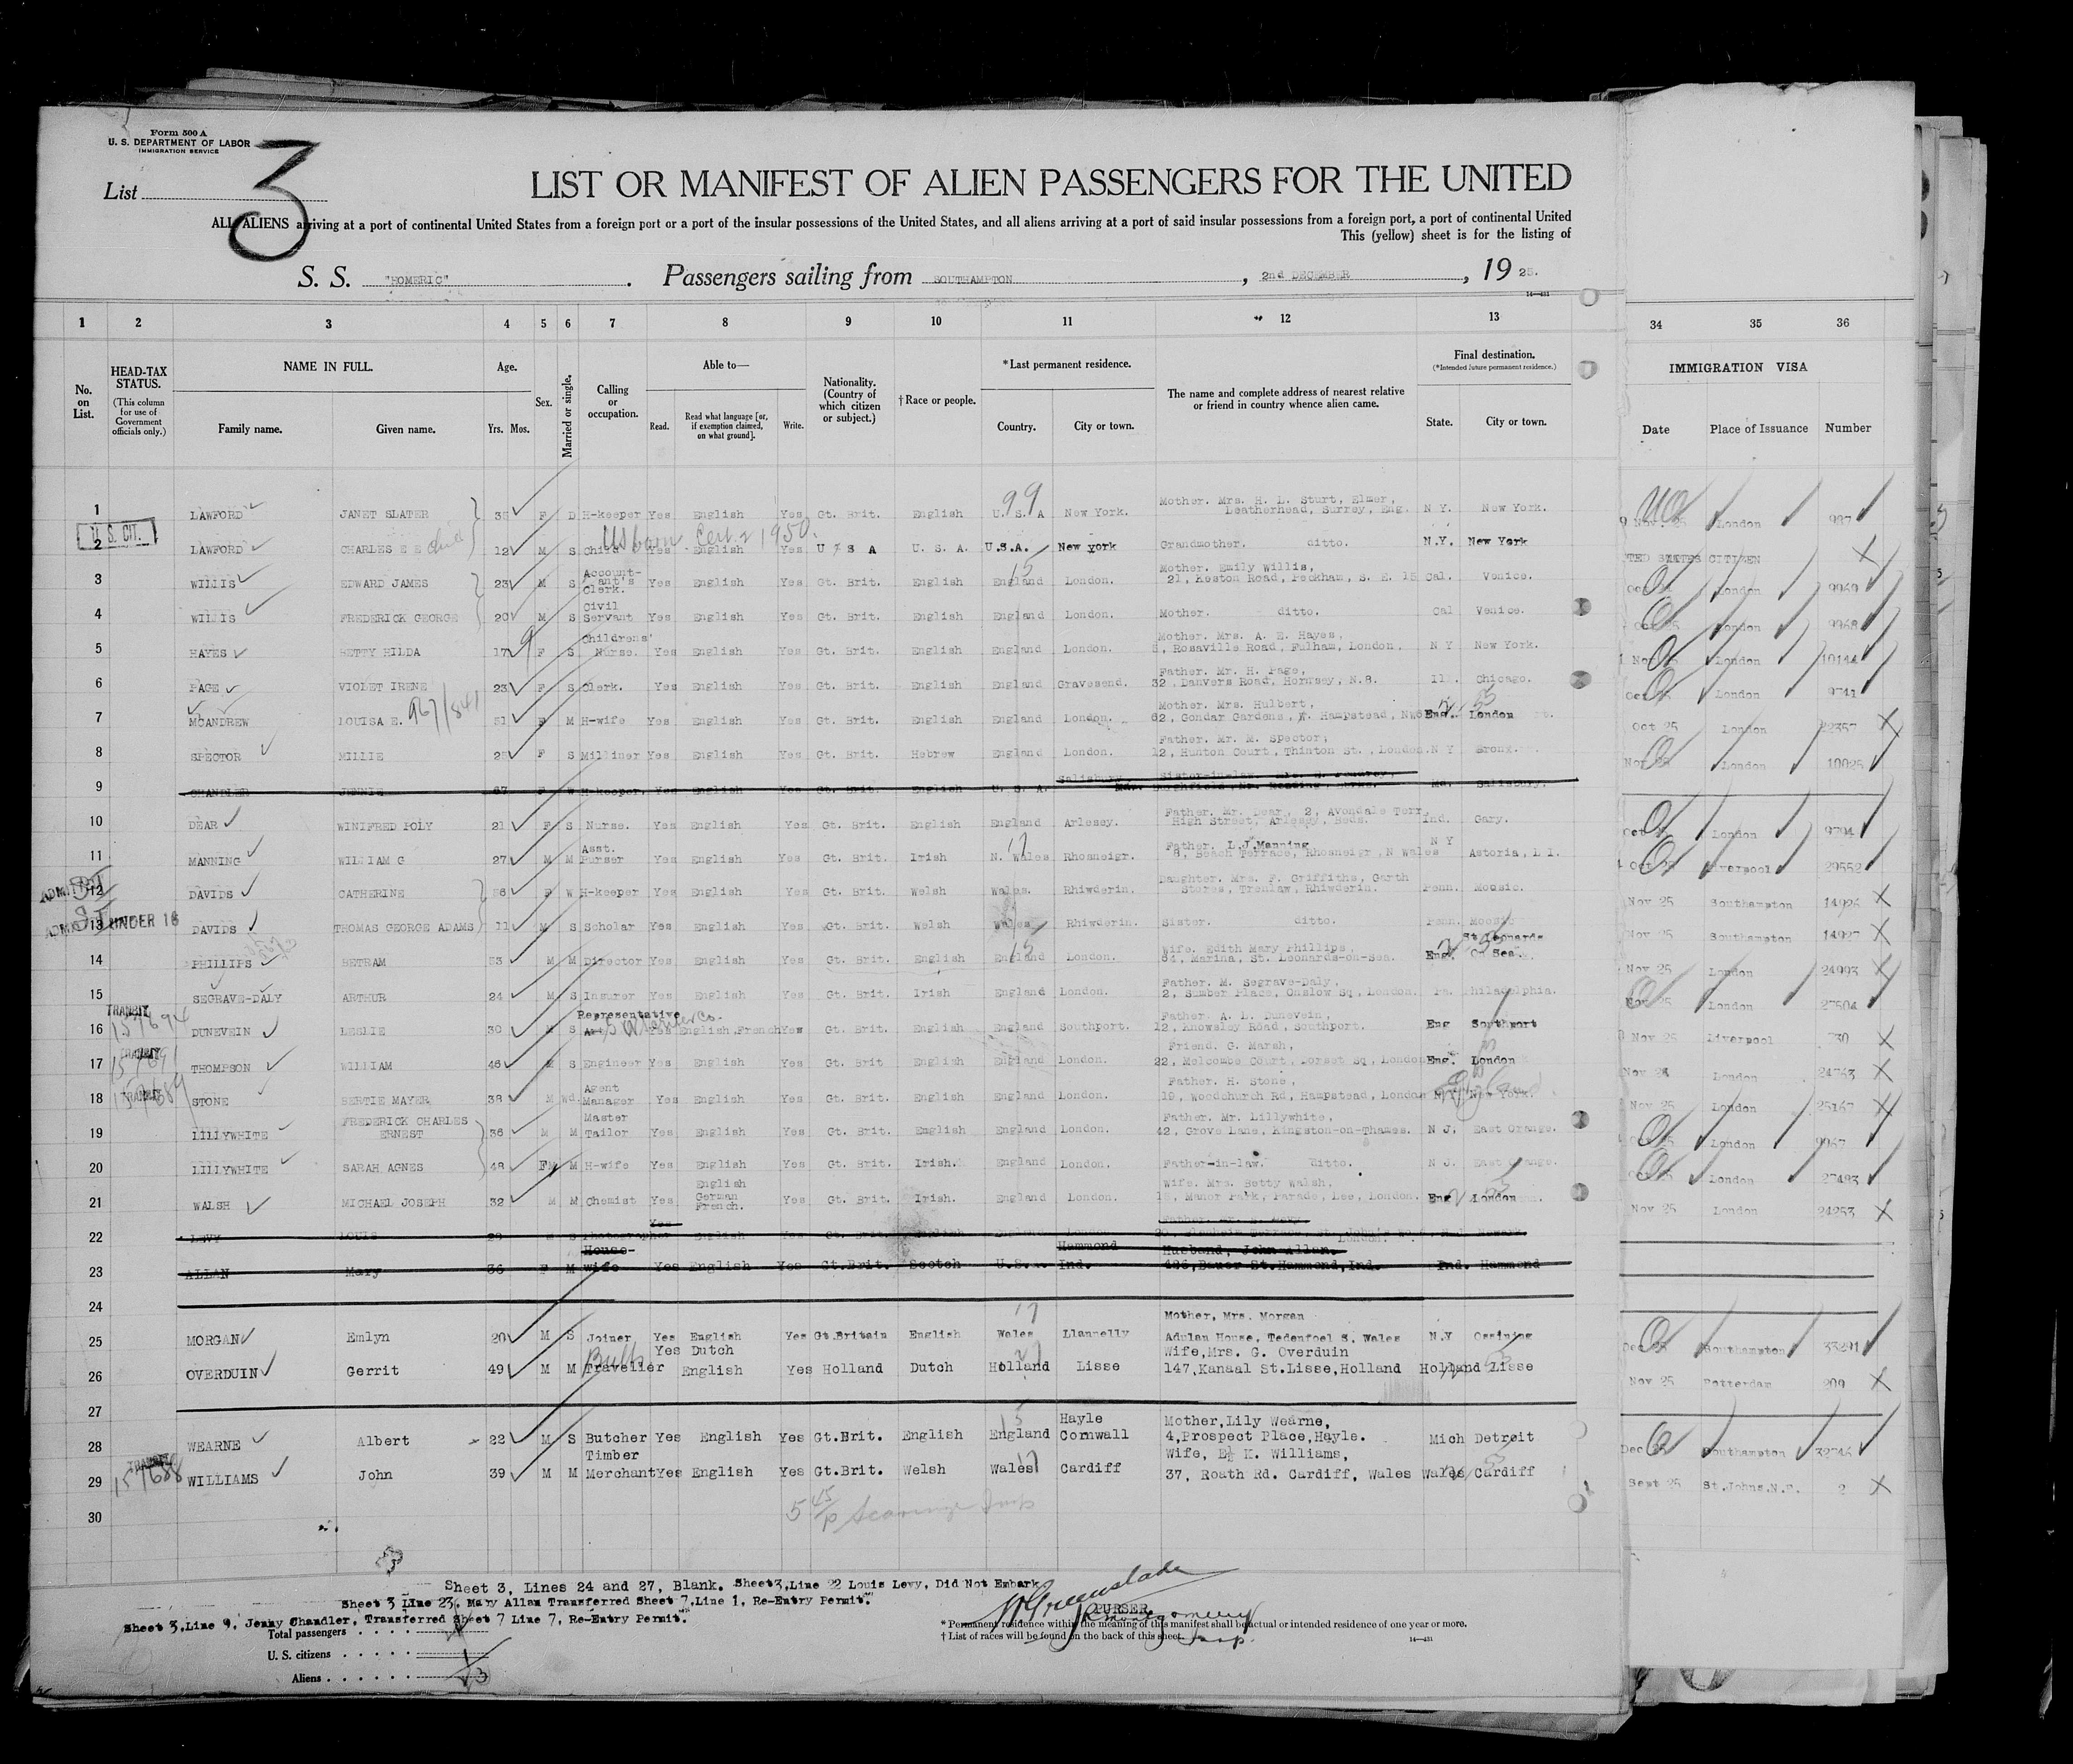 Form 500 A
U. S. DEPARTMENT OF LABOR
IMMIGRATION SERVICE
List 3
LIST OR MANIFEST OF ALIEN PASSENGERS FOR THE UNITED
ALL ALIENS arriving at a port of continental United States from a foreign port or a port of the insular possessions of the United States, and all aliens arriving at a port of said insular possessions from a foreign port, a port of continental United
This (yellow) sheet is for the listing of
S. S. "HOMERIC". Passengers sailing from SOUTHAMPTON, 2nd DECEMBER, 1925.
14—431
1 2 3 4 5 6 7 8 9 10 11 12 13 34 35 36
No. on List.
HEAD-TAX STATUS.
(This column for use of Government officials only.)
NAME IN FULL.
Family name. Given name.
Age.
Yrs. Mos.
Sex.
Married or single.
Calling or occupation.
Able to—
Read. Read what language [or, if exemption claimed, on what ground]. Write.
Nationality. (Country of which citizen or subject.)
† Race or people.
*Last permanent residence.
Country. City or town.
The name and complete address of nearest relative or friend in country whence alien came.
Final destination.
(*Intended future permanent residence.)
State. City or town.
IMMIGRATION VISA
Date Place of Issuance Number
1 LAWFORD JANET SLATER 35 F D H-keeper Yes English Yes Gt. Brit. English U. S. A New York. Mother. Mrs. H. L. Sturt, Elmer, Leatherhead, Surrey, Eng. N Y. New York. London 987
U. S. CIT.
2 LAWFORD CHARLES E E child 12 M S Child Yes English Yes U S A U. S. A. U.S.A. New york Grandmother. ditto. N.Y. New York CITIZEN
3 WILLIS EDWARD JAMES 23 M S Account-ant's Clerk. Yes English Yes Gt. Brit. English England London. Mother. Emily Willis, 21, Reston Road, Peckham, S. E. 15 Cal. Venice. London 9969
4 WILLIS FREDERICK GEORGE 20 M S Civil Servant Yes English Yes Gt. Brit. English England London. Mother. ditto. Cal Venice. London 9968
5 HAYES BETTY HILDA 17 F S Childrens' Nurse. Yes English Yes Gt. Brit. English England London. Mother. Mrs. A. E. Hayes, 5, Rosaville Road, Fulham, London. N Y New York. London 10144
6 PAGE VIOLET IRENE 23 F S Clerk. Yes English Yes Gt. Brit. English England Gravesend. Father. Mr. H. Page, 32, Danvers Road, Hornsey, N.8. Ill. Chicago. London 9741
7 MCANDREW LOUISA E. 51 F M H-wife Yes English Yes Gt. Brit. English England London. Mother. Mrs. Hulbert, 62, Gondar Gardens, W. Hampstead, NW6 Eng. London Oct 25 London 22357
8 SPECTOR MILLIE 25 F S Milliner Yes English Yes Gt. Brit. Hebrew England London. Father. Mr. M. Spector, 12, Hunton Court, Thinton St., London. N Y Bronx. London 10025
9 CHANDLER JENNIE 67 F W H-keeper. Yes English Yes Gt. Brit. English U. S. A. Salisbury Md. Md. Salisbury.
10 DEAR WINIFRED POLY 21 F S Nurse. Yes English Yes Gt. Brit. English England Arlesey. Father. Mr. Dear, 2, Avondale Terr, High Street, Arlesey, Beds. Ind. Gary. London 9794
11 MANNING WILLIAM G 27 M M Asst. Purser Yes English Yes Gt. Brit. Irish N. Wales Rhosneigr. Father. L.J.Manning 8, Beach Terrace, Rhosneigr, N Wales N Y Astoria, L I. Liverpool 29552
12 DAVIDS CATHERINE 56 F W H-keeper Yes English Yes Gt. Brit. Welsh Wales. Rhiwderin. Daughter. Mrs. F. Griffiths, Garth Stores, Trenlaw, Rhiwderin. Penn. Moosic. Nov 25 Southampton 14926
UNDER 16
13 DAVIDS THOMAS GEORGE ADAMS 11 M S Scholar Yes English Yes Gt. Brit. Welsh Wales Rhiwderin. Sister. ditto. Penn. Moosic Nov 25 Southampton 14927
14 PHILLIPS BETRAM 53 M M Director Yes English Yes Gt. Brit. English England London. Wife. Edith Mary Phillips, 64, Marina, St. Leonards-on-Sea. Eng. St Leonards On Sea. Nov 25 London 24993
15 SEGRAVE-DALY ARTHUR 24 M S Insurer Yes English Yes Gt. Brit. Irish England London. Father. M. Segrave-Daly, 2, Sumber Place, Onslow Sq, London. Pa. Philadelphia. London 27504
TRANSIT 157694
16 DUNEVEIN LESLIE 30 M S Representative Yes English, French Yes Gt. Brit. English England Southport. Father. A. L. Dunevein, 12, Knowsley Road, Southport. Eng Southport Nov 25 Liverpool 30
157691
17 THOMPSON WILLIAM 46 M S Engineer Yes English Yes Gt. Brit English England London. Friend. G. Marsh, 22, Melcombe Court, Dorset Sq, London Eng. London Nov 24 London 24763
157689
18 STONE BERTIE MAYER 38 M Wd. Agent Manager Yes English Yes Gt. Brit. English England London. Father. H. Stone, 19, Woodchurch Rd, Hampstead, London N Y New York. England Nov 25 London 25167
19 LILLYWHITE FREDERICK CHARLES ERNEST 36 M M Master Tailor Yes English Yes Gt. Brit. English England London. Father. Mr. Lillywhite, 42, Grove Lane, Kingston-on-Thames. N J. East Orange. London 9967
20 LILLYWHITE SARAH AGNES 48 F M H-wife Yes English Yes Gt. Brit. Irish. England London. Father-in-law. ditto. N J. East Orange. London 27483
21 WALSH MICHAEL JOSEPH 32 M M Chemist Yes English German French. Yes Gt. Brit. Irish. England London. Wife. Mrs. Betty Walsh, 15, Manor Park, Parade, Lee, London. Eng London Nov 25 London 24253
22 LEVY LOUIS 29 M S Photographer Yes English Yes Gt. Brit. English England London N.J. Newark
23 ALLAN Mary 36 F M House-wife Yes English Yes Gt.Brit. Scotch U.S.A. Hammond Ind. Husband, John Allan. 426, Bauer St. Hammond, Ind. Ind. Hammond
24
25 MORGAN Emlyn 20 M S Joiner Yes English Yes Gt.Britain English Wales Llannelly Mother, Mrs. Morgan Adulan House, Tedenfoel S. Wales N.Y Ossining Southampton 33291
26 OVERDUIN Gerrit 49 M M Bulb Traveller Yes Dutch English Yes Holland Dutch Holland Lisse Wife,Mrs. G. Overduin 147,Kanaal St.Lisse,Holland Holland Lisse Nov 25 Rotterdam 209
27
28 WEARNE Albert 22 M S Butcher Yes English Yes Gt.Brit. English England Hayle Cornwall Mother,Lily Wearne, 4,Prospect Place,Hayle. Mich Detroit Dec 25 Southampton 32746
TRANSIT 157688
29 WILLIAMS John 39 M M Timber Merchant Yes English Yes Gt.Brit. Welsh Wales Cardiff Wife, E. K. Williams, 37, Roath Rd. Cardiff, Wales Wales Cardiff Sept 25 St.Johns.N.F. 2
30
Sheet 3, Lines 24 and 27, Blank. Sheet3,Line 22 Louis Levy, Did Not Embark
Sheet 3 Line 23, Mary Allan Transferred Sheet 7,Line 1, Re-Entry Permit.
Sheet 3,Line 9, Jenny Chandler, Transferred Sheet 7 Line 7, Re-Entry Permit.
PURSER
Total passengers
U. S. citizens 1
Aliens
* Permanent residence within the meaning of this manifest shall be actual or intended residence of one year or more.
† List of races will be found on the back of this sheet.
14—431